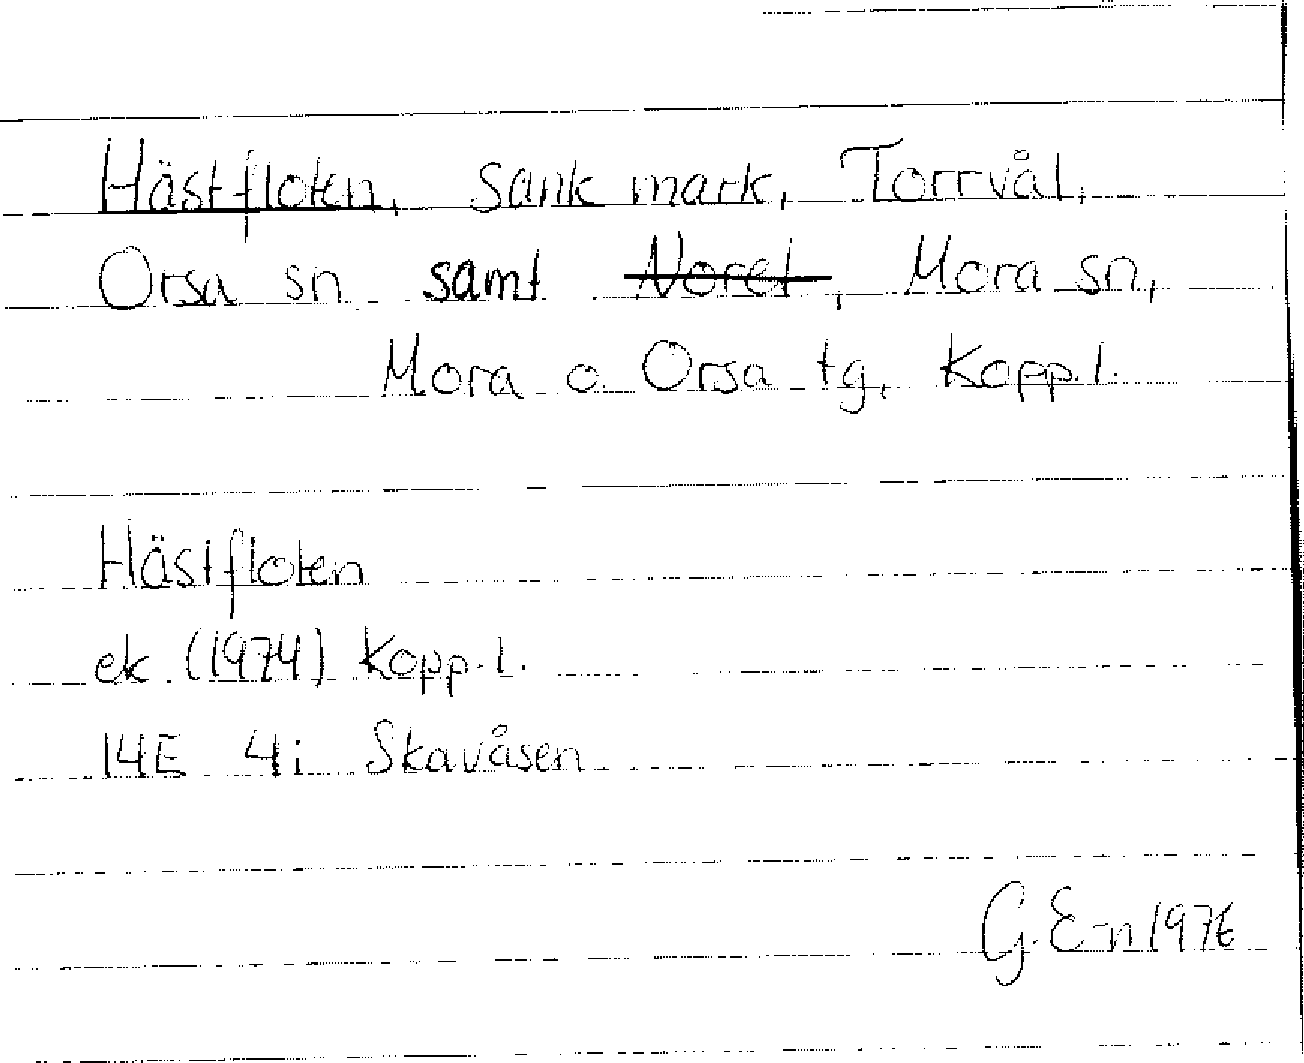 Hästfloten, sank mark, Torrvål,
Orsa sn samt Noret, Mora sn,
Mora o Orsa tg, Kopp.l.
Hästfloten
ek (1974) Kopp.l.
14E 4i Skavåsen
G.E-n 1976